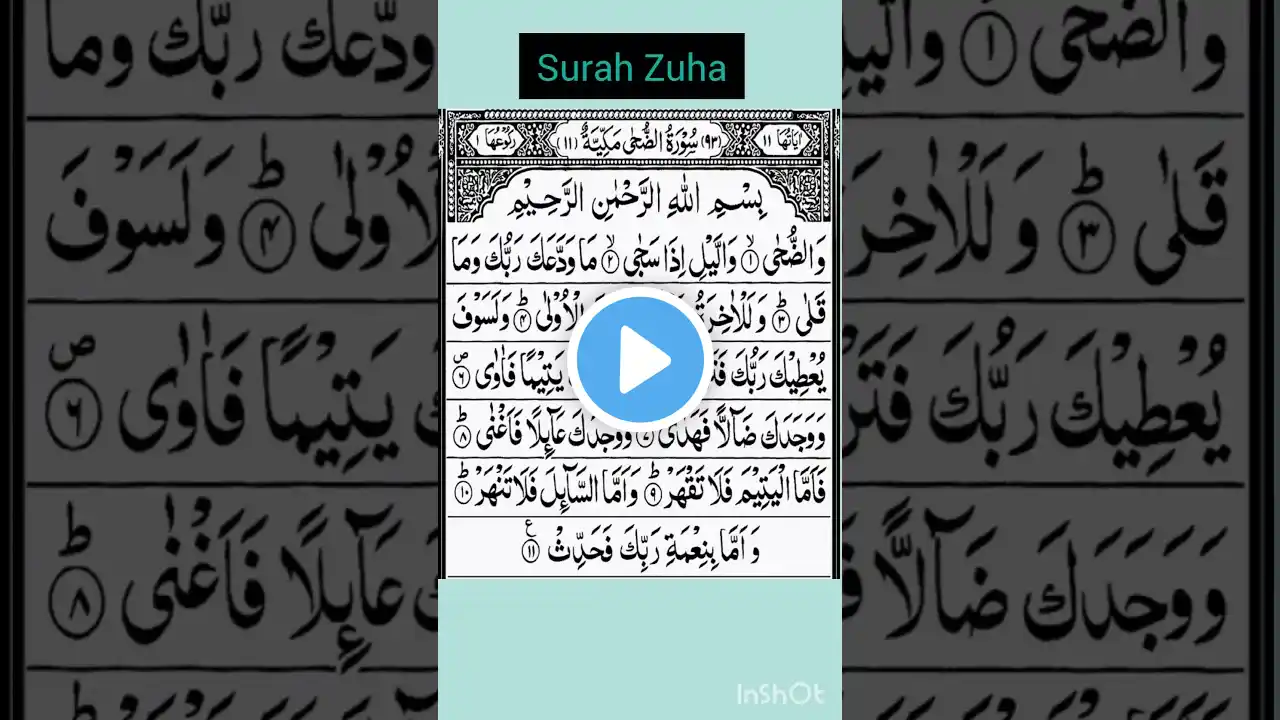 Surah Zuha
اٰيَاتُهَا ١١ (٩٣) سُوْرَةُ الضُّحٰى مَكِّيَّةٌ (١١) رُكُوْعُهَا ١
بِسْمِ اللّٰهِ الرَّحْمٰنِ الرَّحِيْمِ
وَالضُّحٰى ۙ١ وَالَّيْلِ اِذَا سَجٰى ۙ٢ مَا وَدَّعَكَ رَبُّكَ وَمَا
قَلٰى ؕ٣ وَ لَلْاٰخِرَةُ الْاُوْلٰى ؕ۴ وَلَسَوْفَ
يُعْطِيْكَ رَبُّكَ يَتِيْمًا فَاٰوٰى ۪ۖ۶
وَوَجَدَكَ ضَآلًّا فَهَدٰى ٧ وَوَجَدَكَ عَآئِلًا فَاَغْنٰى ؕ٨
فَاَمَّا الْيَتِيْمَ فَلَا تَقْهَرْ ؕ٩ وَاَمَّا السَّآئِلَ فَلَا تَنْهَرْ ؕ١٠
وَ اَمَّا بِنِعْمَةِ رَبِّكَ فَحَدِّثْ ١١
InShOt